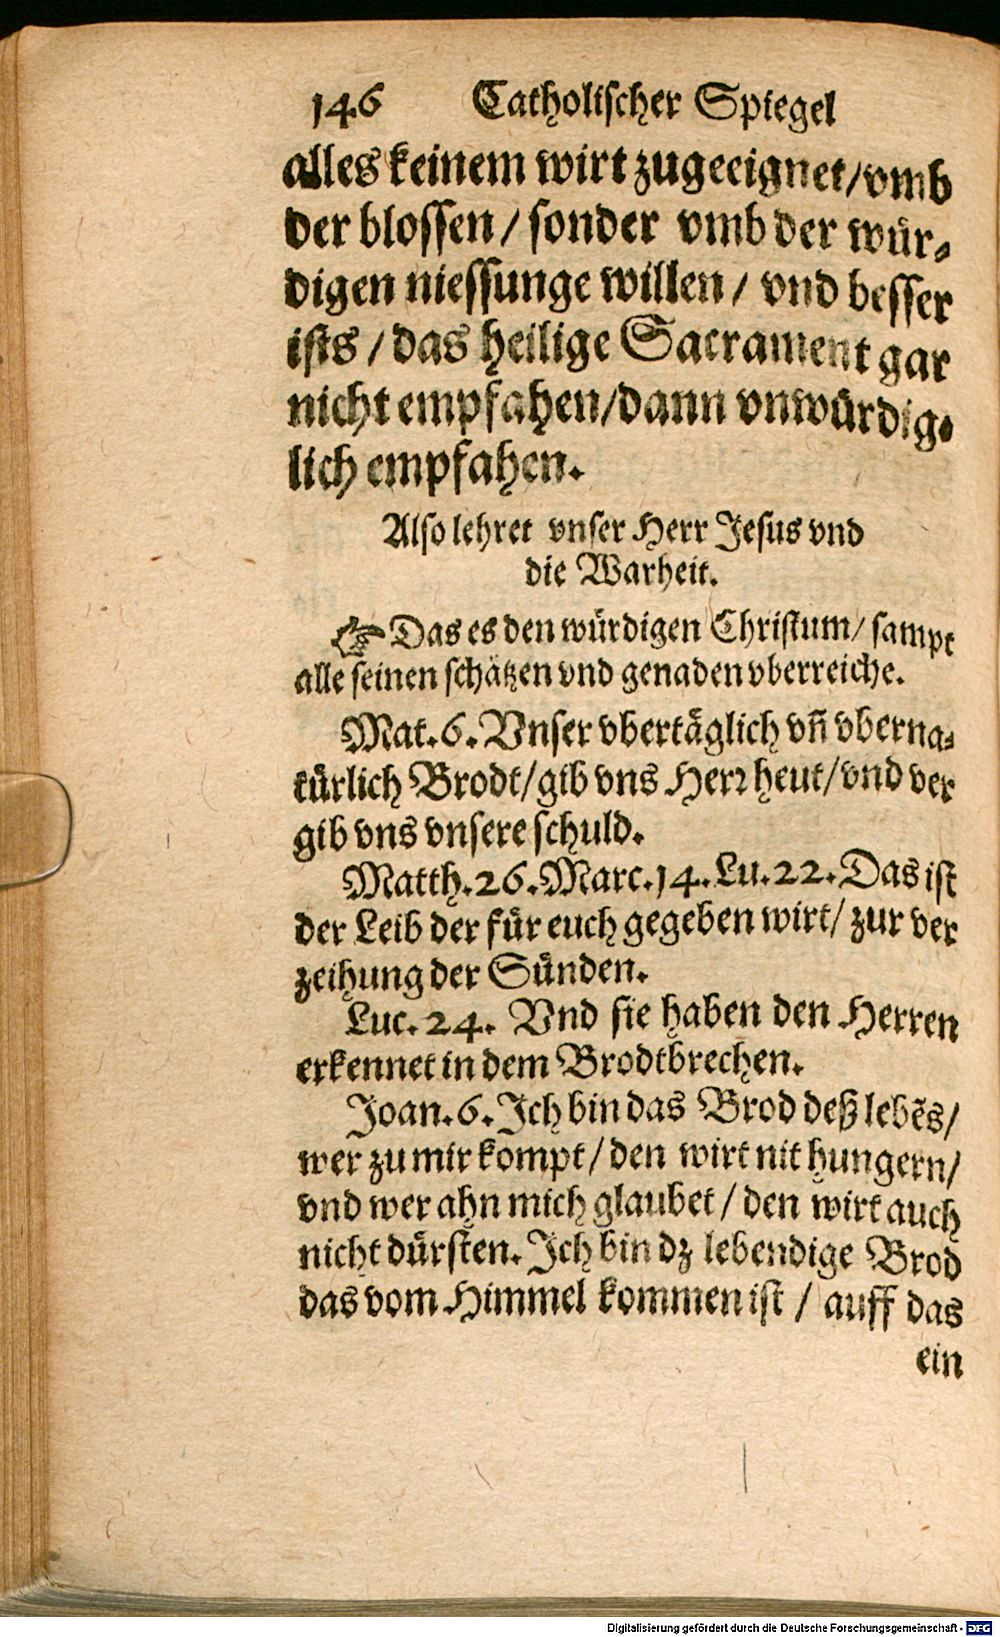 146 Catholischer Spiegel
alles keinem wirt zugeeignet/vmb
der blossen/ sonder vmb der wür-
digen niessunge willen/ vnd besser
ists/ das heilige Sacrament gar
nicht empfahen/dann vnwürdig-
lich empfahen.
Also lehret vnser Herr Jesus vnd
die Warheit.
☞ Das es den würdigen Christum/ sampt
alle seinen schätzen vnd genaden vberreiche.
Mat. 6. Vnser vbertäglich vñ vberna-
türlich Brodt/gib vns Herr heut/vnd ver
gib vns vnsere schuld.
Matth. 26. Marc. 14. Lu. 22. Das ist
der Leib der für euch gegeben wirt/ zur ver
zeihung der Sünden.
Luc. 24. Vnd sie haben den Herren
erkennet in dem Brodtbrechen.
Joan. 6. Ich bin das Brod deß lebẽs/
wer zu mir kompt/ den wirt nit hungern/
vnd wer ahn mich glaubet/ den wirt auch
nicht dürsten. Ich bin dz lebendige Brod
das vom Himmel kommen ist/ auff das
ein
Digitalisierung gefördert durch die Deutsche Forschungsgemeinschaft - DFG